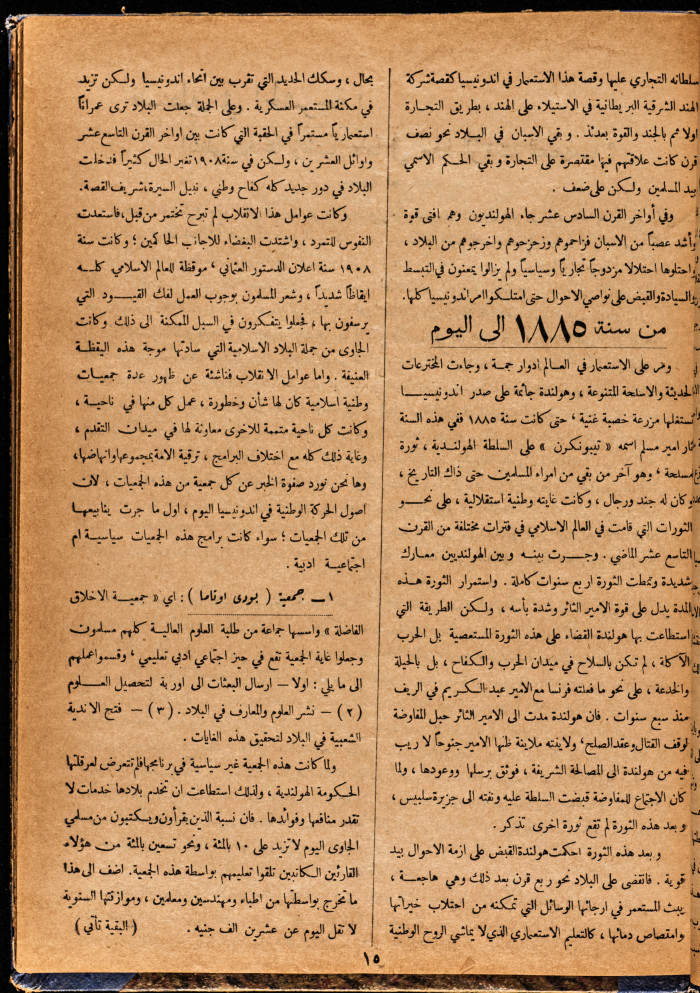 سلطانه التجاري عليها وقصة هذا الاستعمار في اندونيسيا كقصة شركة
الهند الشرقية البريطانية في الاستيلاء على الهند ، بطريق التجارة
اولا ثم بالجند والقوة بعدئذ . وبقي الاسبان في البلاد نحو نصف
قرن كانت علاقتهم فيها مقتصرة على التجارة وبقي الحكم الاسمي
بيد المسلمين ولكن على ضعف .
وفي أواخر القرن السادس عشر جاء الهولنديون وهم افتى قوة
وأشد عصباً من الاسبان فزاحموهم وزحزحوهم واخرجوهم من البلاد ،
واحتلوها احتلالا مزدوجاً تجارياً وسياسياً ولم يزالوا يمعنون في التبسط
والسيادة والقبض على نواصي الاحوال حتى امتلكوا امر اندونيسيا كلها .
من سنة ١٨٨٥ الى اليوم
ومر على الاستعمار في العالم ادوار جمة ، وجاءت المخترعات
الحديثة والاسلحة المتنوعة ، وهولندة جاثمة على صدر اندونيسيا
تستغلها مزرعة خصبة غنية ، حتى كانت سنة ١٨٨٥ ففي هذه السنة
ثار امير مسلم اسمه « تيبونكرن » على السلطة الهولندية ، ثورة
مسلحة ، وهو آخر من بقي من امراء المسلمين حتى ذاك التاريخ ،
وكان له جند ورجال ، وكانت غايته وطنية استقلالية ، على نحو
الثورات التي قامت في العالم الاسلامي في فترات مختلفة من القرن
التاسع عشر الماضي . وجرت بينه وبين الهولنديين معارك
شديدة وتمطت الثورة اربع سنوات كاملة . واستمرار الثورة هذه
المدة يدل على قوة الامير الثائر وشدة بأسه ، ولكن الطريقة التي
استطاعت بها هولندة القضاء على هذه الثورة المستعصية بل الحرب
الآكلة ، لم تكن بالسلاح في ميدان الحرب والكفاح ، بل بالحيلة
والخدعة ، على نحو ما فعلته فرنسا مع الأمير عبد الكريم في الريف
منذ سبع سنوات . فان هولندة مدت الى الامير الثائر حبل المفاوضة
لوقف القتال وعقد الصلح ، ولاينته ملاينة ظنها الامير جنوحاً لا ريب
فيه من هولندة الى المصالحة الشريفة ، فوثق برسلها ووعودها ، ولما
كان الاجتماع للمفاوضة قبضت السلطة عليه ونفته الى جزيرة سلبيس ،
وبعد هذه الثورة لم تقع ثورة اخرى تذكر .
وبعد هذه الثورة احكمت هولندة القبض على ازمة الاحوال بيد
قوية . فانقضى على البلاد نحو ربع قرن بعد ذلك وهي هاجعة ،
يبث المستعمر في ارجائها الوسائل التي تمكنه من احتلاب خيراتها
وامتصاص دمائها ، كالتعليم الاستعماري الذي لا يماشي الروح الوطنية
بحال ، وسكك الحديد التي تقرب بين انحاء اندونيسيا ولكن تزيد
في مكنة المستعمر العسكرية . وعلى الجملة جعلت البلاد ترى عمراناً
استعمارياً مستمراً في الحقبة التي كانت بين اواخر القرن التاسع عشر
واوائل العشرين ، ولكن في سنة ١٩٠٨ تغير الحال كثيراً فدخلت
البلاد في دور جديد كله كفاح وطني ، نبيل السيرة ، شريف القصة .
وكانت عوامل هذا الانقلاب لم تبرح تختمر من قبل ، فاستعدت
النفوس للتمرد ، واشتدت البغضاء للاجانب الحاكمين ؛ وكانت سنة
١٩٠٨ سنة اعلان الدستور العثماني ، موقظة للعالم الاسلامي كله
ايقاظاً شديداً ، وشعر المسلمون بوجوب العمل لفك القيود التي
يرسفون بها ، فجعلوا يتفكرون في السبل الممكنة الى ذلك وكانت
الجاوى من جملة البلاد الاسلامية التي سادتها موجة هذه اليقظة
العنيفة . واما عوامل الانقلاب فناشئة عن ظهور عدة جمعيات
وطنية اسلامية كان لها شأن وخطورة ، عمل كل منها في ناحية ،
وكانت كل ناحية متممة للاخرى معاونة لها في ميدان التقدم ،
وغاية ذلك كله مع اختلاف البرامج ، ترقية الامة بمجموعها وانهاضها ،
وها نحن نورد صفوة الخبر عن كل جمعية من هذه الجمعيات ، لان
اصول الحركة الوطنية في اندونيسيا اليوم ، اول ما جرت ينابيعها
من تلك الجمعيات ؛ سواء كانت برامج هذه الجمعيات سياسية ام
اجتماعية ادبية .
١ — جمعية ( بودى اوتاما ) : اي « جمعية الاخلاق
الفاضلة » واسسها جماعة من طلبة العلوم العالية كلهم مسلمون
وجعلوا غاية الجمعية تقع في حيز اجتماعي ادبي تعليمي ، وقسموا عملهم
الى ما يلي : اولا — ارسال البعثات الى اوربة لتحصيل العلوم
( ٢ ) — نشر العلوم والمعارف في البلاد . ( ٣ ) — فتح الاندية
الشعبية في البلاد لتحقيق هذه الغايات .
ولما كانت هذه الجمعية غير سياسية في برنامجها فلم تتعرض لعرقلتها
الحكومة الهولندية ، ولذلك استطاعت ان تخدم بلادها خدمات لا
تقدر منافعها وفوائدها . فان نسبة الذين يقرأون ويكتبون من مسلمي
الجاوى اليوم لا تزيد على ١٠ بالمئة ، ونحو تسعين بالمئة من هؤلاء
القارئين الكاتبين تلقوا تعليمهم بواسطة هذه الجمعية . اضف الى هذا
ما تخرج بواسطتها من اطباء ومهندسين ومعلمين ، وموازنتها السنوية
لا تقل اليوم عن عشرين الف جنيه .        ( البقية تأتي )
١٥